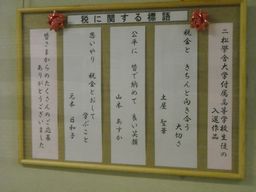 税に関する標語
二松學舎大学付属高等学校生徒の
入選作品
税金と きちんと向き合う
大切さ
土屋 聖華
公平に 皆で納めて 良い笑顔
山本 あすか
思いやり 税金とおして
学ぶこと
元木 日和子
皆さまからのたくさんのご応募
ありがとうございました